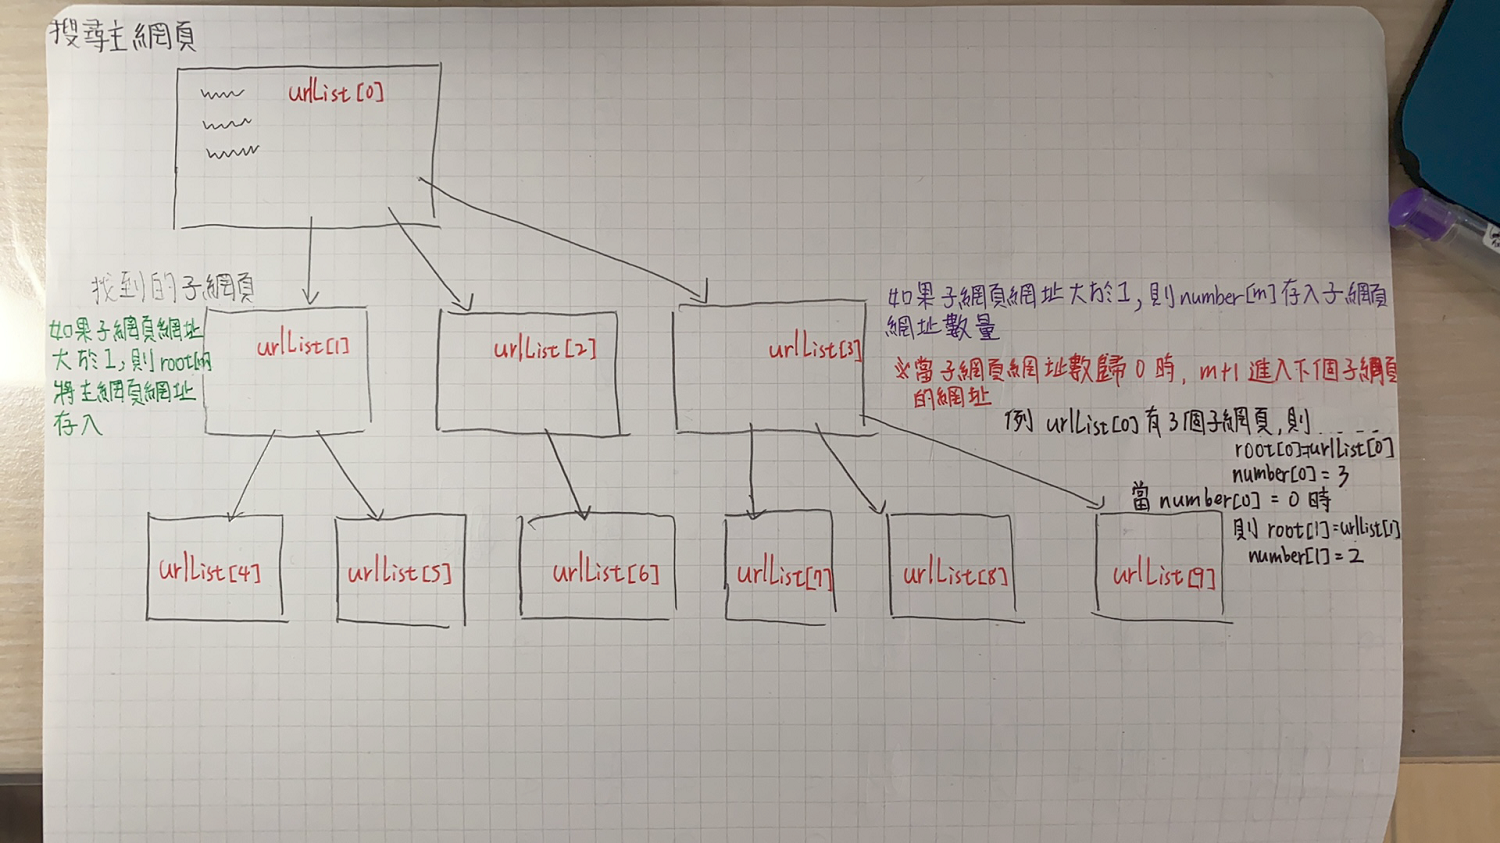 搜尋主網頁
urlList[0]
找到的子網頁
如果子網頁網址
大於1,則root[n]
將主網頁網址
存入
urlList[1]
urlList[2]
urlList[3]
如果子網頁網址大於1,則number[m]存入子網頁
網址數量
※當子網頁網址數歸0時,m+1進入下個子網頁
的網址
例 urlList[0]有3個子網頁,則.....
root[0]=urlList[0]
number[0]=3
當number[0]=0時
則root[1]=urlList[1]
number[1]=2
urlList[4]
urlList[5]
urlList[6]
urlList[7]
urlList[8]
urlList[9]